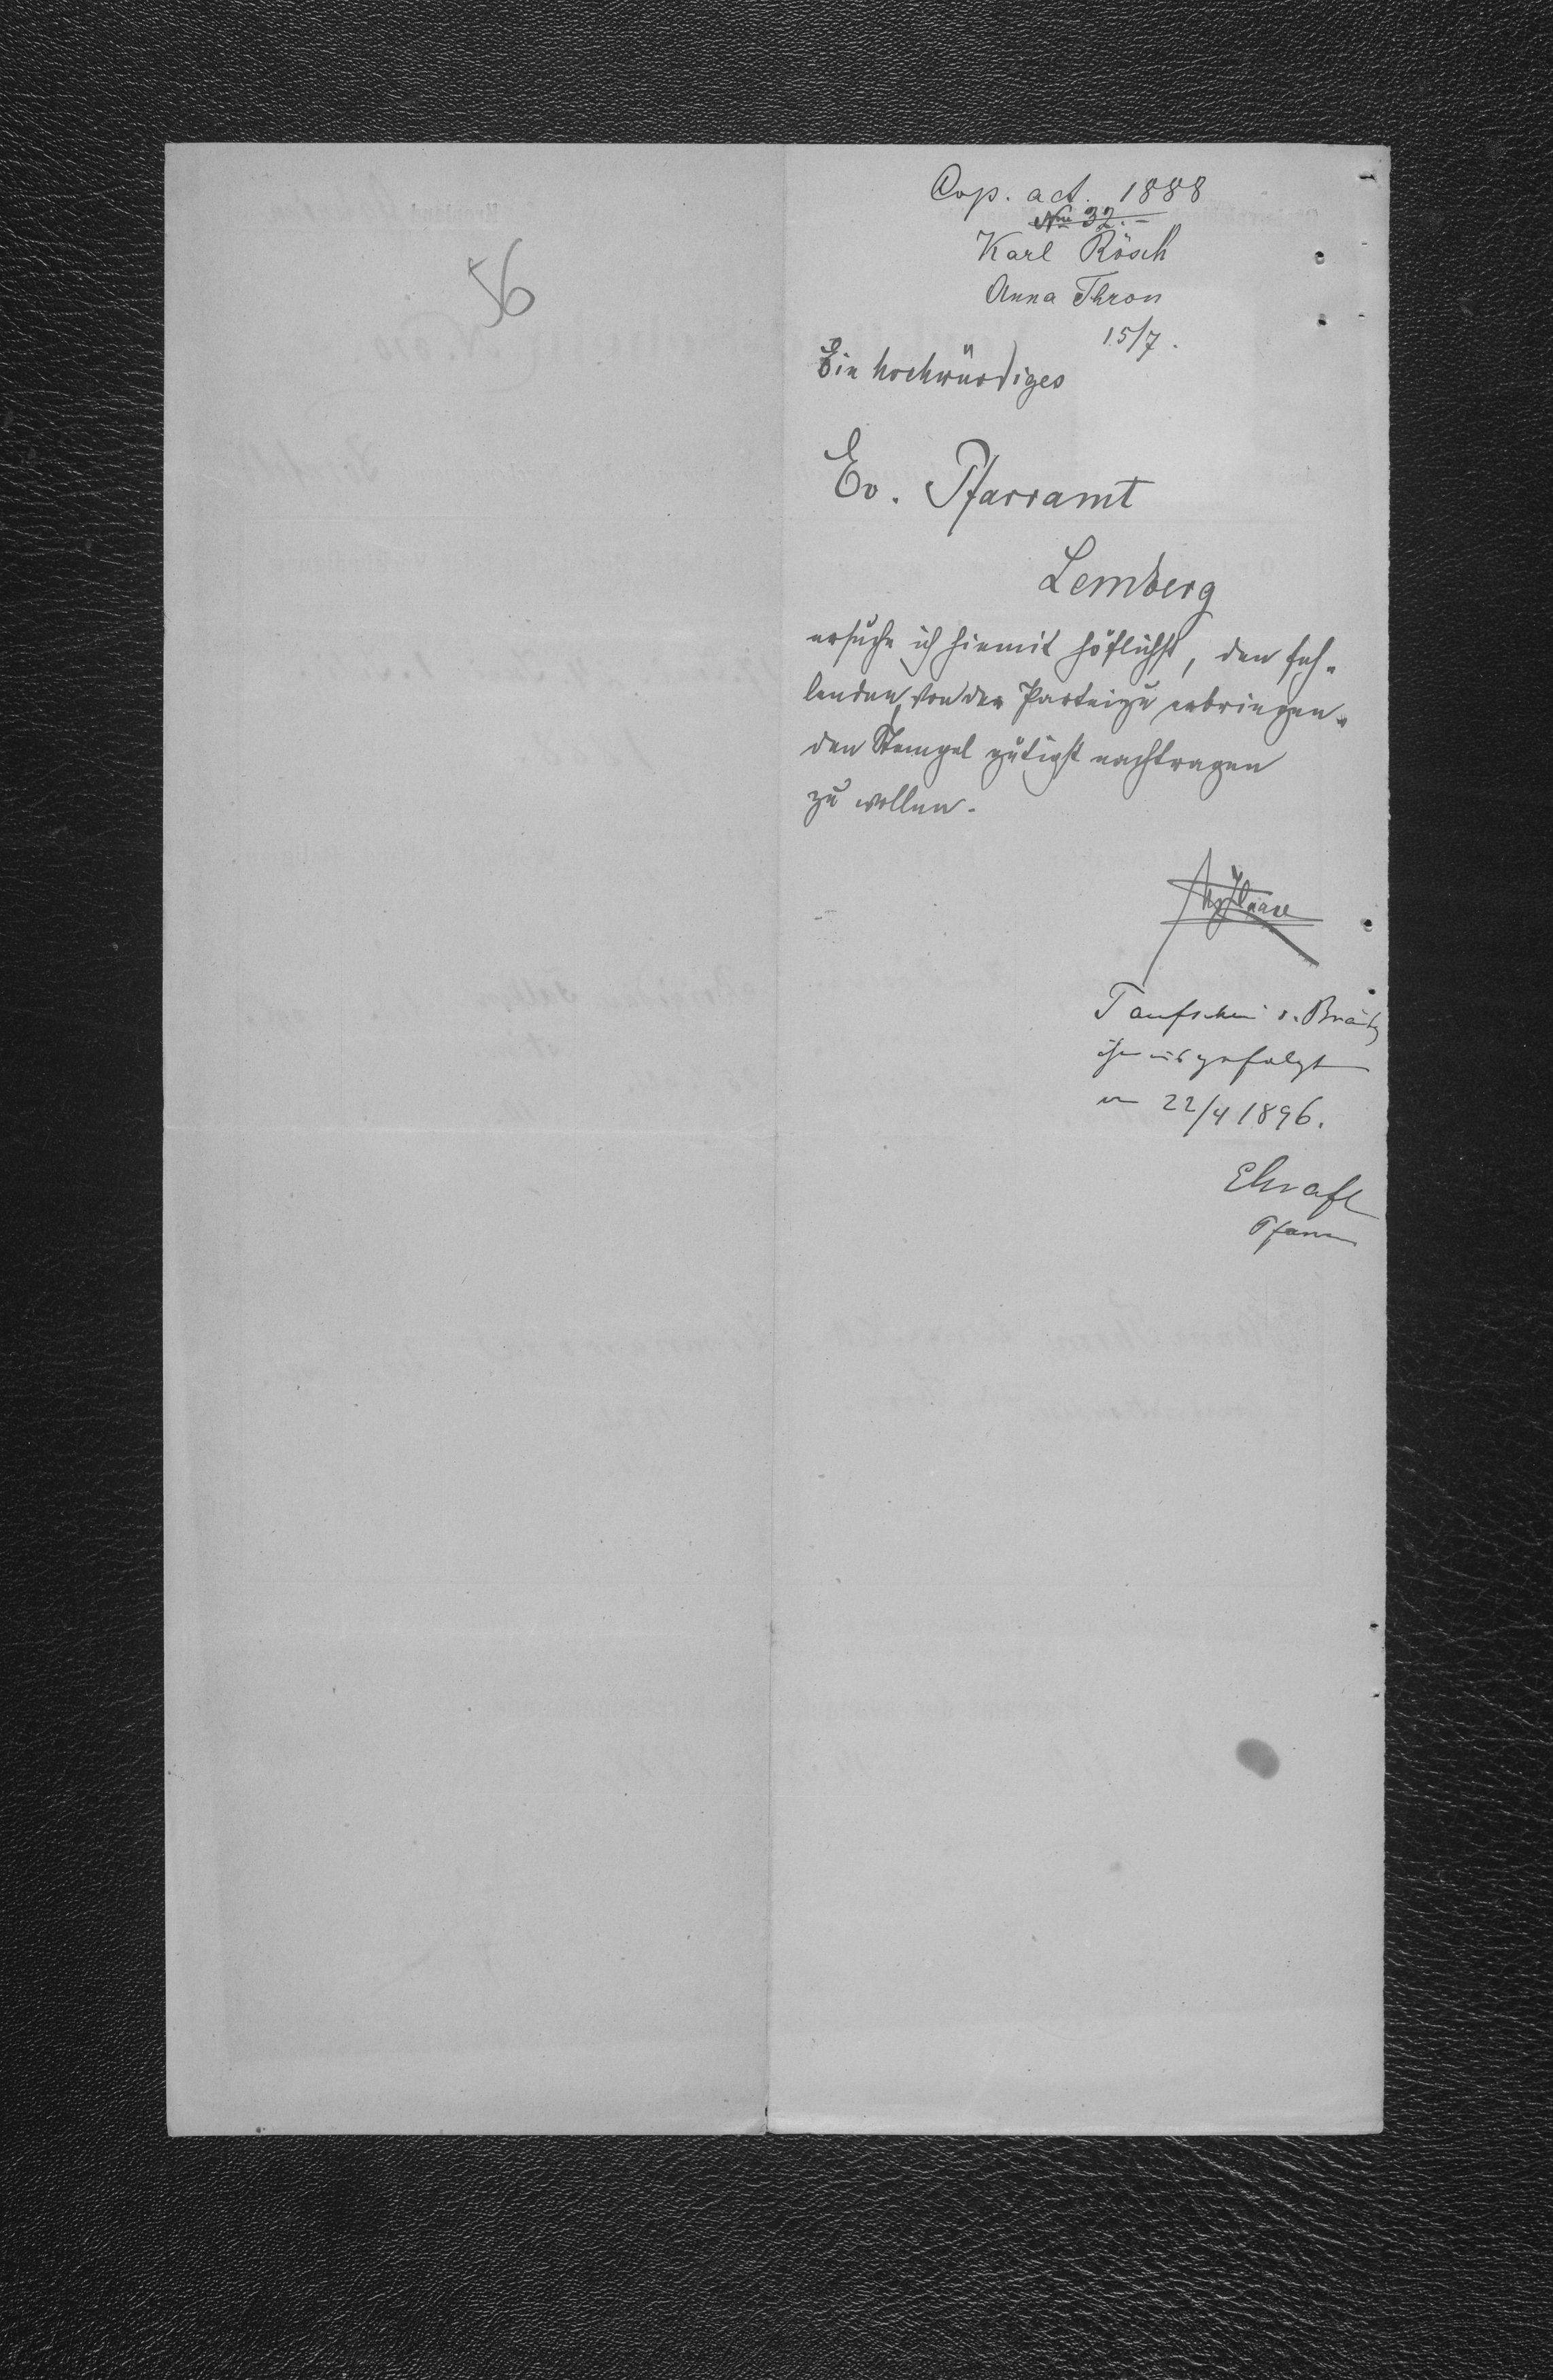 56
Cop. act. 1888
Nro 32.-
Karl Rösch
Anna Thron
15/7.
Ein hochwürdiges
Ev. Pfarramt
Lemberg
ersuche ich hiemit höflichst, den feh-
lenden, von der Partei zu erbringen-
den Stempel gütigst nachtragen
zu wollen.
Taufschein d. Bräutg
ausgefolgt
22/4 1896.
Pfarrer